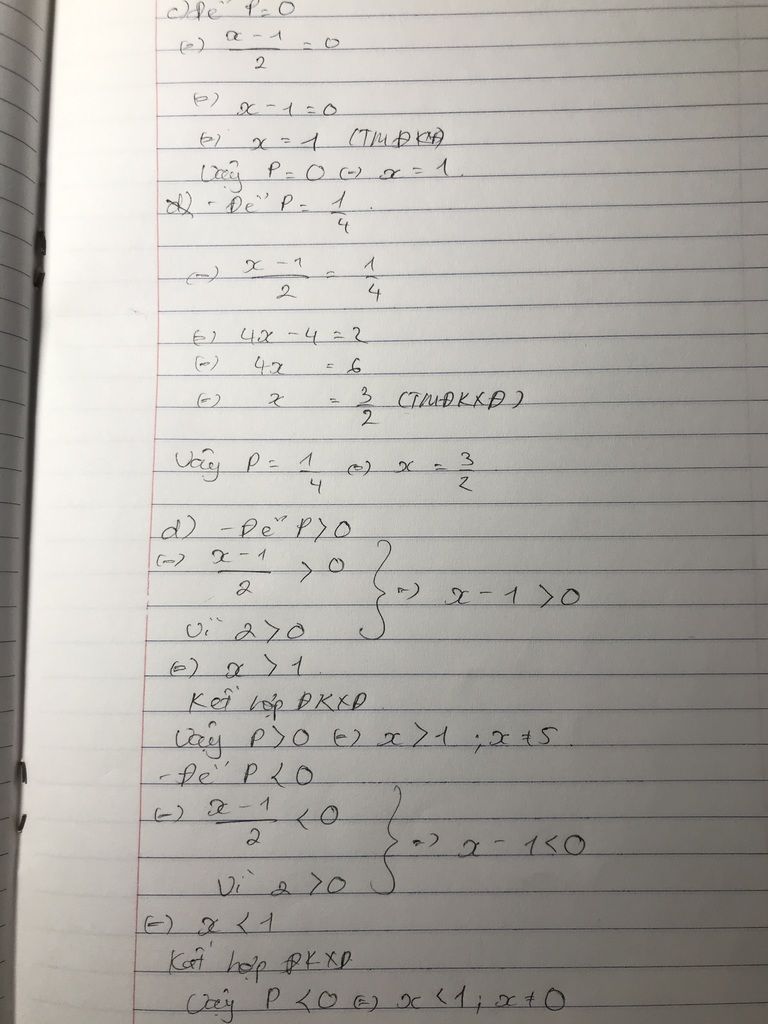 c) Để P = 0
(=) x - 1 / 2 = 0
(=) x - 1 = 0
(=) x = 1 (TMĐKXĐ)
Vậy P = 0 (=) x = 1.
d) - Để P = 1/4.
(=) x - 1 / 2 = 1/4
(=) 4x - 4 = 2
(=) 4x = 6
(=) x = 3/2 (TMĐKXĐ)
Vậy P = 1/4 (=) x = 3/2
d) - Để P > 0
(=) x - 1 / 2 > 0 } =) x - 1 > 0
Vì 2 > 0
(=) x > 1
Kết hợp ĐKXĐ
Vậy P > 0 (=) x > 1 ; x ≠ 5.
- Để P < 0
(=) x - 1 / 2 < 0 } =) x - 1 < 0
Vì 2 > 0
(=) x < 1
Kết hợp ĐKXĐ
Vậy P < 0 (=) x < 1 ; x ≠ 0